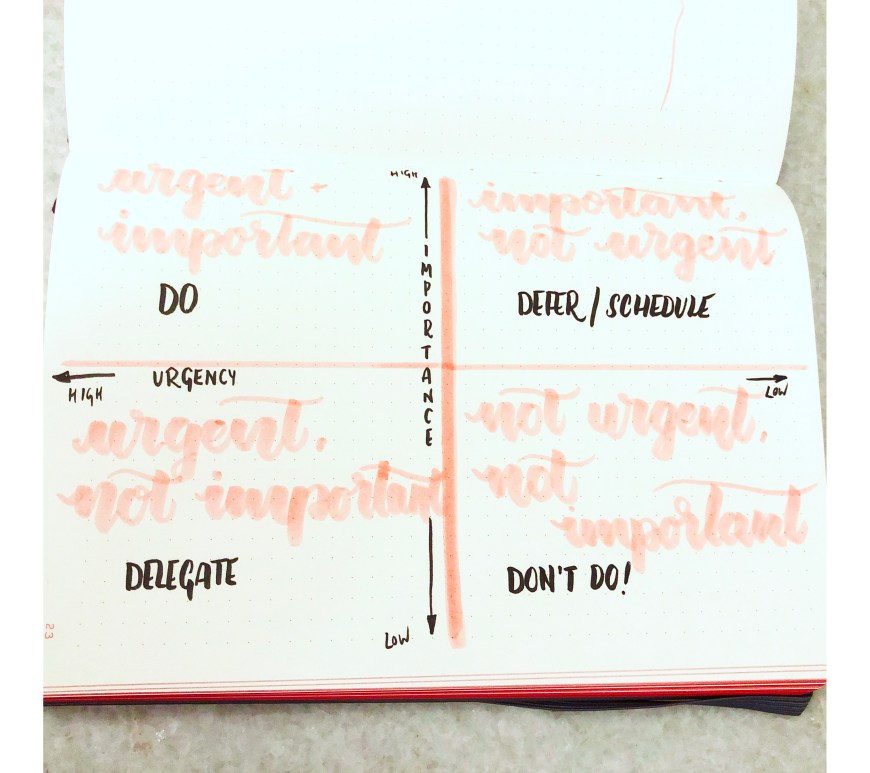 urgent +
important
DO
HIGH
IMPORTANCE
important,
not urgent
DEFER / SCHEDULE
URGENCY
HIGH
LOW
urgent,
not important
DELEGATE
LOW
not urgent,
not
important
DON'T DO!
23